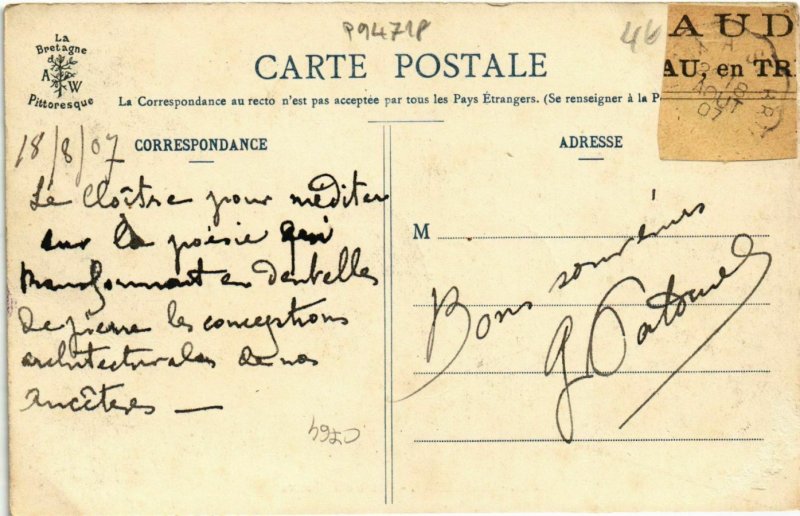 La
Bretagne
A W
Pittoresque
P94718
46
AUD
AU, en TR
AOUT
07
CARTE POSTALE
La Correspondance au recto n'est pas acceptée par tous les Pays Étrangers. (Se renseigner à la P
18/8/07
CORRESPONDANCE
Le Cloître pour méditer
sur la poésie qui
transformant en dentelles
de pierre les conceptions
architecturales de nos
ancêtres —
ADRESSE
M
Bons souvenirs